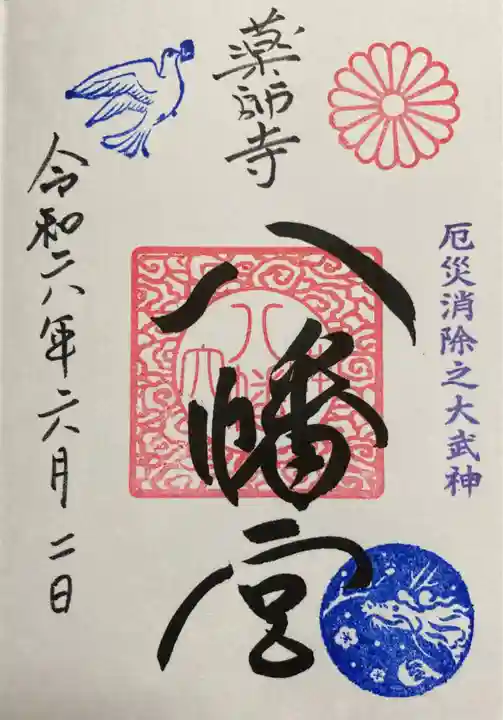 薬師寺
厄災消除之大武神
八幡宮
令和六年六月二日